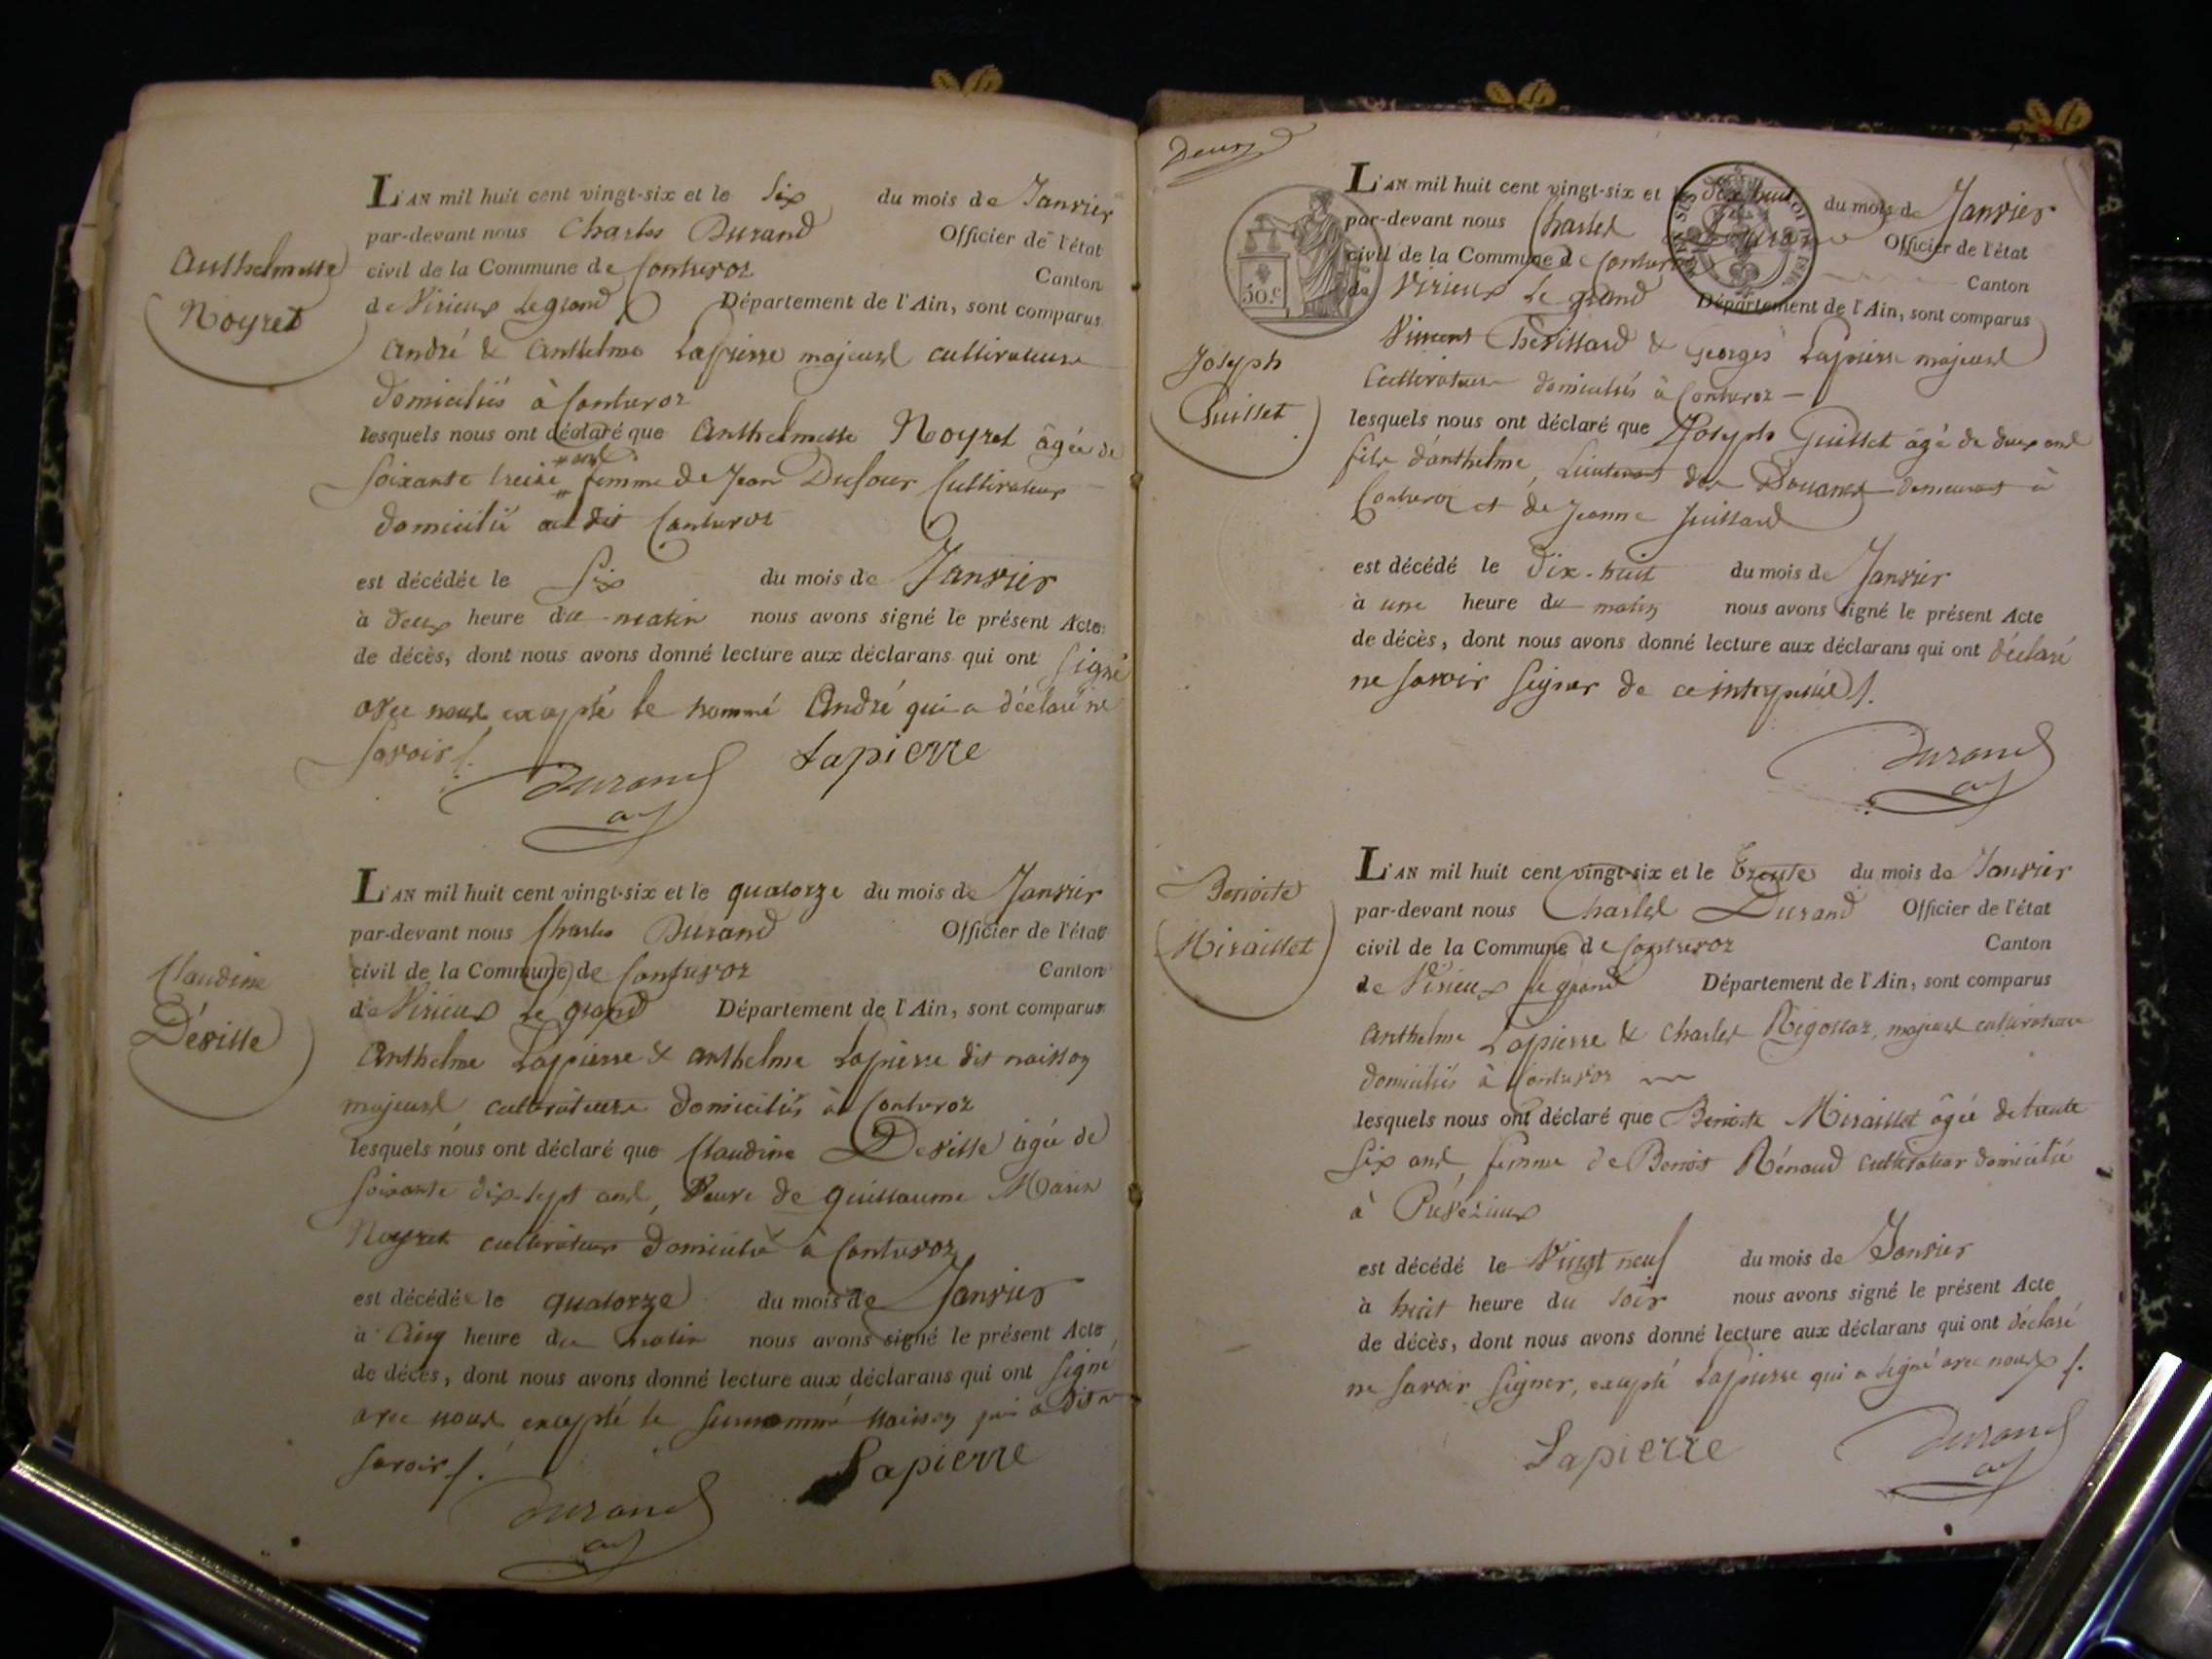 Anthelmette
Noyret
L'AN mil huit cent vingt-six et le Six du mois de Janvier
par-devant nous Charles Durand Officier de l'état
civil de la Commune de Contrevoz Canton
de Virieux Legrand Département de l'Ain, sont comparus
André & Anthelme Lapierre majeurs cultivateurs
domiciliés à Contrevoz
lesquels nous ont déclaré que Anthelmette Noyret âgée de
soixante treize ans femme de Jean Dufour Cultivateur
domicilié au dit Contrevoz
est décédée le Six du mois de Janvier
à deux heure du matin nous avons signé le présent Acte
de décès, dont nous avons donné lecture aux déclarans qui ont signé
avec nous excepté le nommé André qui a déclaré ne
savoir /.
Durand Lapierre
Claudine
Déville
L'AN mil huit cent vingt-six et le quatorze du mois de Janvier
par-devant nous Charles Durand Officier de l'état
civil de la Commune de Contrevoz Canton
de Virieux Le grand Département de l'Ain, sont comparus
Anthelme Lapierre & anthelme Lapierre dit naisson
majeurs cultivateurs domiciliés à Contrevoz
lesquels nous ont déclaré que Claudine Deville âgée de
soixante dix-sept ans, Veuve de guillaume Marin
Noyret cultivateur domicilié à Contrevoz
est décédée le quatorze du mois de Janvier
à Cinq heure du matin nous avons signé le présent Acte
de décès, dont nous avons donné lecture aux déclarans qui ont signé
avec nous excepté le surnommé naisson qui a dit ne
savoir /.
Durand Lapierre
Deux
50.c
L'AN mil huit cent vingt-six et le dix huit du mois de Janvier
par-devant nous Charles Durand Officier de l'état
civil de la Commune de Contrevoz Canton
de Virieux Le grand Département de l'Ain, sont comparus
Vincent Chevillard & georges Lapierre majeurs
Cultivateurs domiciliés à Contrevoz
Joseph
Guillet
lesquels nous ont déclaré que Joseph Guillet âgé de deux ans
fils d'anthelme, Lieutenant des Douanes demeurant à
Contrevoz et de Jeanne Juillard
est décédé le dix-huit du mois de Janvier
à une heure du matin nous avons signé le présent Acte
de décès, dont nous avons donné lecture aux déclarans qui ont déclaré
ne savoir signer de ce interpellés /.
Durand
Benoite
Miraillet
L'AN mil huit cent vingt-six et le trente du mois de Janvier
par-devant nous Charles Durand Officier de l'état
civil de la Commune de Contrevoz Canton
de Virieux le grand Département de l'Ain, sont comparus
Anthelme Lapierre & Charles Rigottaz, majeurs cultivateurs
domiciliés à Contrevoz
lesquels nous ont déclaré que Benoite Miraillet âgée de trente
six ans femme de Benoit Rénaud cultivateur domicilié
à
est décédé le Vingt neuf du mois de Janvier
à huit heure du soir nous avons signé le présent Acte
de décès, dont nous avons donné lecture aux déclarans qui ont déclaré
ne savoir signer, excepté Lapierre qui a signé avec nous /.
Lapierre Durand